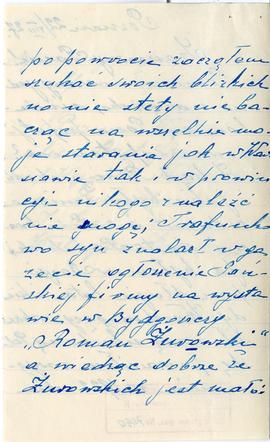 po powrocie zaczęłam
szukać swoich blizkich
no nie stety nie ba-
cząc na wszelkie mo
je starania jak w Wa
szawie tak i v prowin
cyi nikogo znaleźć
nie mogę; Trafunko
wo syn znalazł v ga
zecie ogłoszenie Pań-
skiej firmy na wysta
wie w Bydgoszczy
„Roman Żurowski"
a wiedząc dobrze że
Żurowskich jest mało